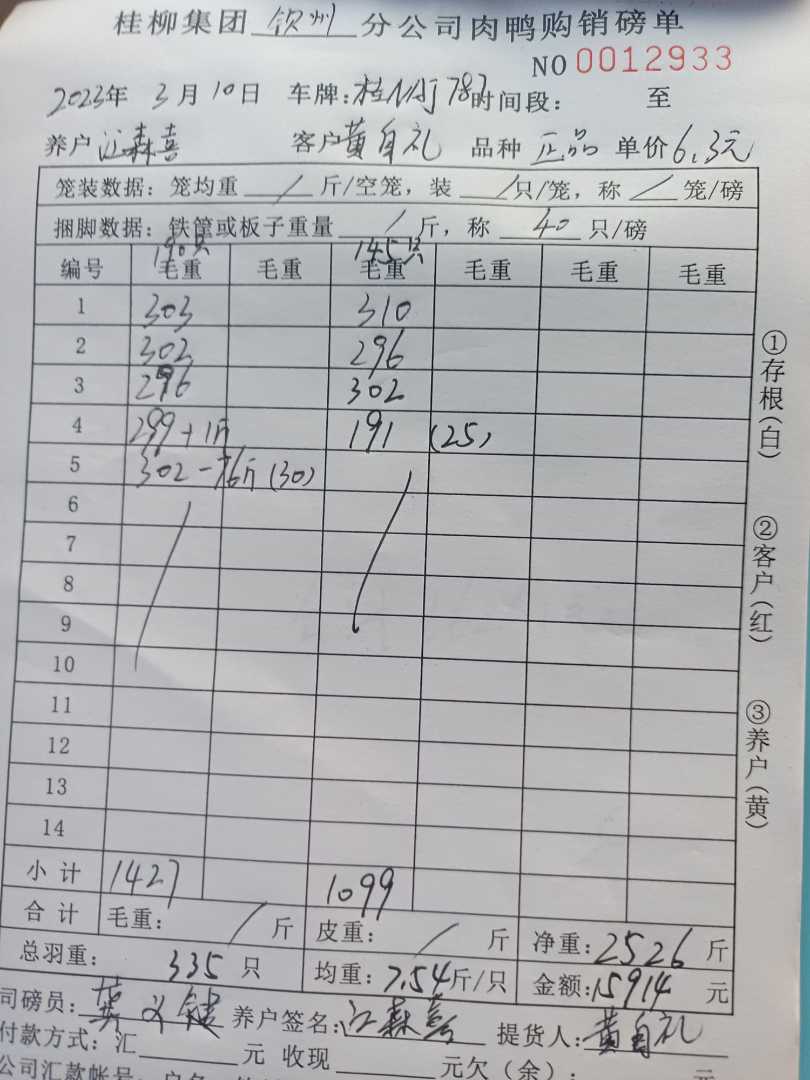 桂柳集团 钦州 分公司肉鸭购销磅单
NO 0012933
2023年 3月10日 车牌：桂NAJ787 时间段： 至
养户 江森喜 客户 黄自礼 品种 正品 单价 6.3元
笼装数据：笼均重 / 斤/空笼，装 / 只/笼，称 / 笼/磅
捆脚数据：铁筐或板子重量 / 斤，称 40 只/磅
190只 145只
编号 毛重 毛重 毛重 毛重 毛重 毛重
1 303 310
2 302 296
3 296 302
4 299+1斤 191 (25)
5 302-76斤(30)
6
7
8
9
10
11
12
13
14
小计 1427 1099
合计 毛重： / 斤 皮重： / 斤 净重：2526 斤
总羽重： 335 只 均重：7.54斤/只 金额：15914 元
司磅员： 养户签名：江森喜 提货人：黄自礼
付款方式：汇 元 收现 元欠（余）： 元
公司汇款帐号：户名
①存根(白)
②客户(红)
③养户(黄)